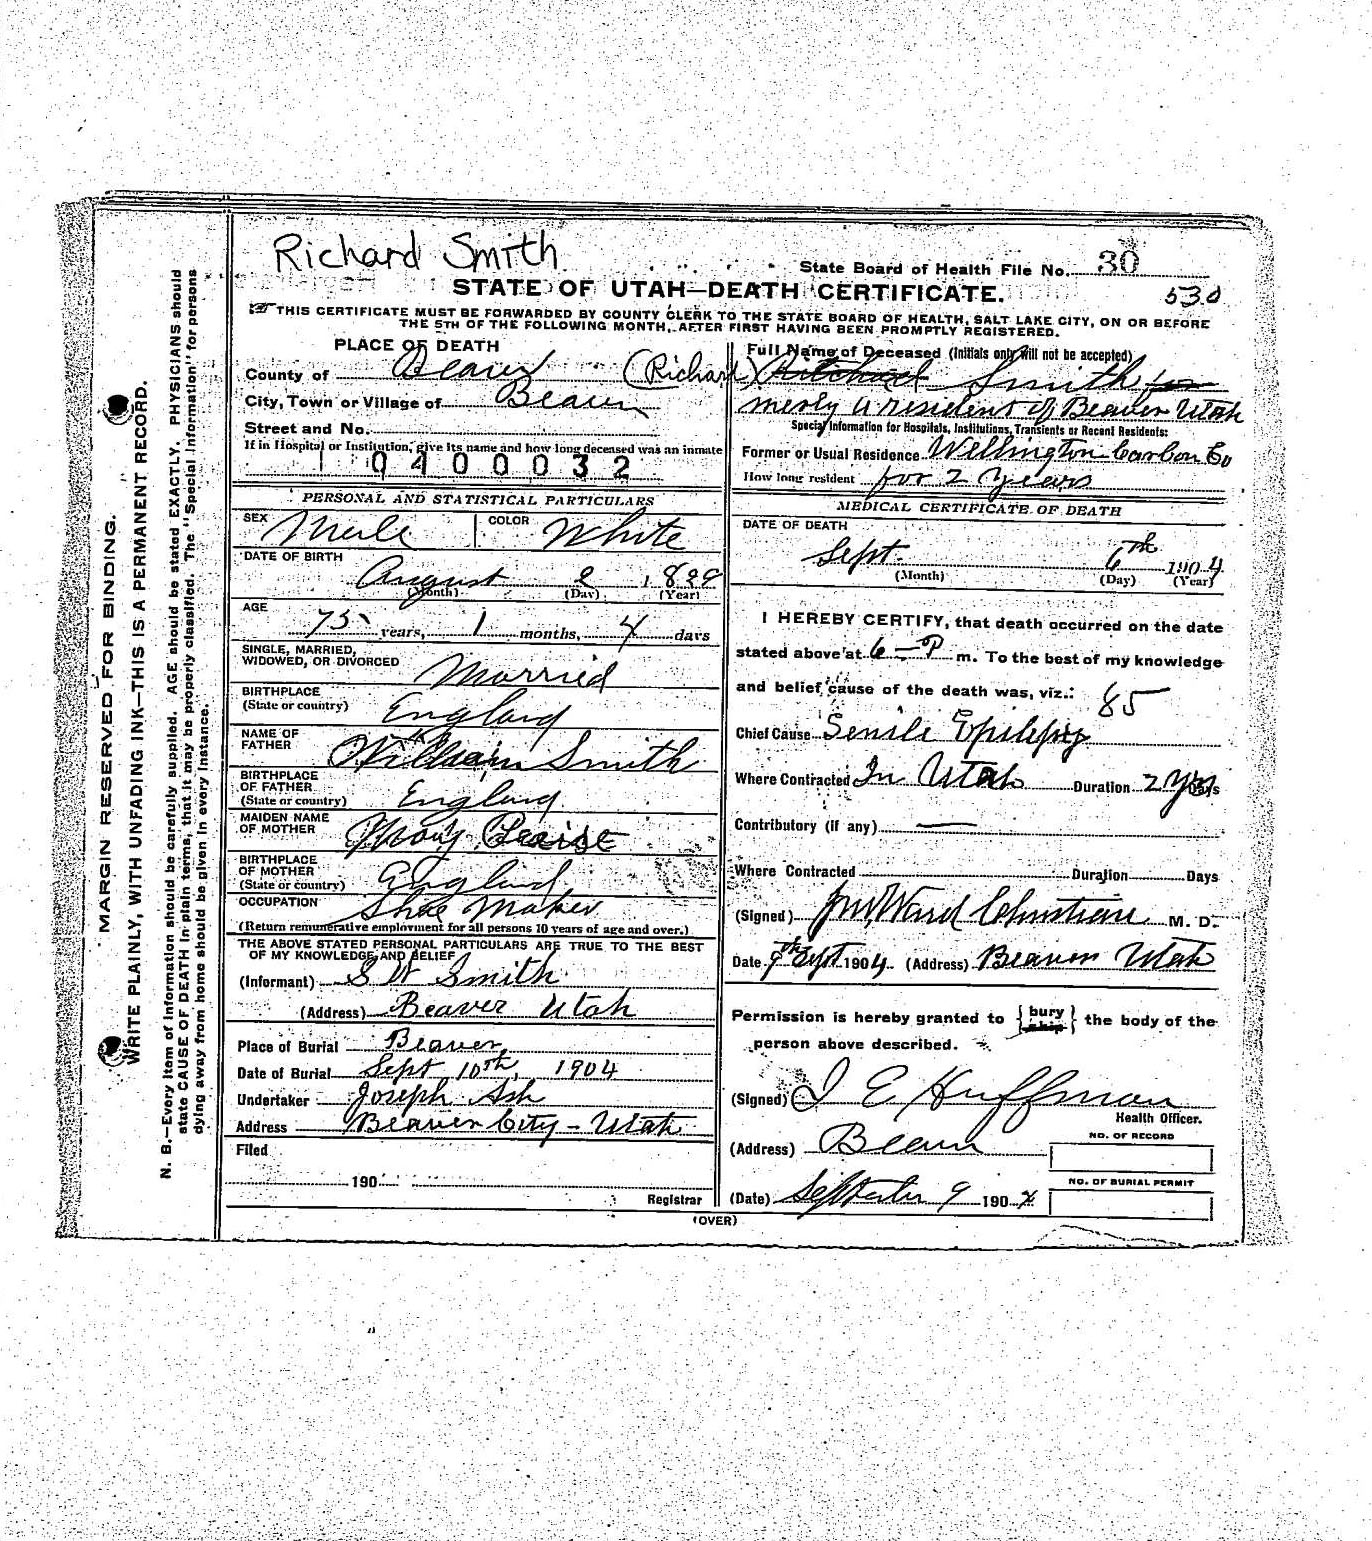 Richard Smith
State Board of Health File No. 30
STATE OF UTAH—DEATH CERTIFICATE.
530
THIS CERTIFICATE MUST BE FORWARDED BY COUNTY CLERK TO THE STATE BOARD OF HEALTH, SALT LAKE CITY, ON OR BEFORE
THE 5TH OF THE FOLLOWING MONTH, AFTER FIRST HAVING BEEN PROMPTLY REGISTERED.
PLACE OF DEATH
County of Beaver
City, Town or Village of Beaver
Street and No.
If in Hospital or Institution, give its name and how long deceased was an inmate
0400032
PERSONAL AND STATISTICAL PARTICULARS
SEX Male COLOR White
DATE OF BIRTH
August 2 1829
(Month) (Day) (Year)
AGE
75 years, 1 months, 4 days
SINGLE, MARRIED,
WIDOWED, OR DIVORCED Married
BIRTHPLACE
(State or country) England
NAME OF
FATHER William Smith
BIRTHPLACE
OF FATHER
(State or country) England
MAIDEN NAME
OF MOTHER Mary
BIRTHPLACE
OF MOTHER
(State or country) England
OCCUPATION Shoe Maker
(Return remunerative employment for all persons 10 years of age and over.)
THE ABOVE STATED PERSONAL PARTICULARS ARE TRUE TO THE BEST
OF MY KNOWLEDGE AND BELIEF
(Informant) S W Smith
(Address) Beaver Utah
Place of Burial Beaver
Date of Burial Sept 10th, 1904
Undertaker Joseph Ash
Address Beaver City - Utah
Filed
190
Registrar
Full Name of Deceased (Initials only will not be accepted)
(Richard) Smith for
merly a resident of Beaver Utah
Special Information for Hospitals, Institutions, Transients or Recent Residents:
Former or Usual Residence Wellington Carbon Co
How long resident for 2 Years
MEDICAL CERTIFICATE OF DEATH
DATE OF DEATH
Sept. 6th 1904
(Month) (Day) (Year)
I HEREBY CERTIFY, that death occurred on the date
stated above at 6 - P m. To the best of my knowledge
and belief, cause of the death was, viz.: 85
Chief Cause Senile Epilepsy
Where Contracted In Utah Duration 2 Yrs
Contributory (if any) —
Where Contracted Duration Days
(Signed) Ward Christian M. D.
Date 9th Sept 1904. (Address) Beaver Utah
Permission is hereby granted to {bury ship} the body of the
person above described.
(Signed) J E Huffman
Health Officer.
(Address) Beaver
NO. OF RECORD
NO. OF BURIAL PERMIT
(Date) September 9 1904
(OVER)
MARGIN RESERVED FOR BINDING.
WRITE PLAINLY, WITH UNFADING INK—THIS IS A PERMANENT RECORD.
N. B.—Every item of information should be carefully supplied. AGE should be stated EXACTLY. PHYSICIANS should
state CAUSE OF DEATH in plain terms, that it may be properly classified. The "Special Information" for persons
dying away from home should be given in every instance.